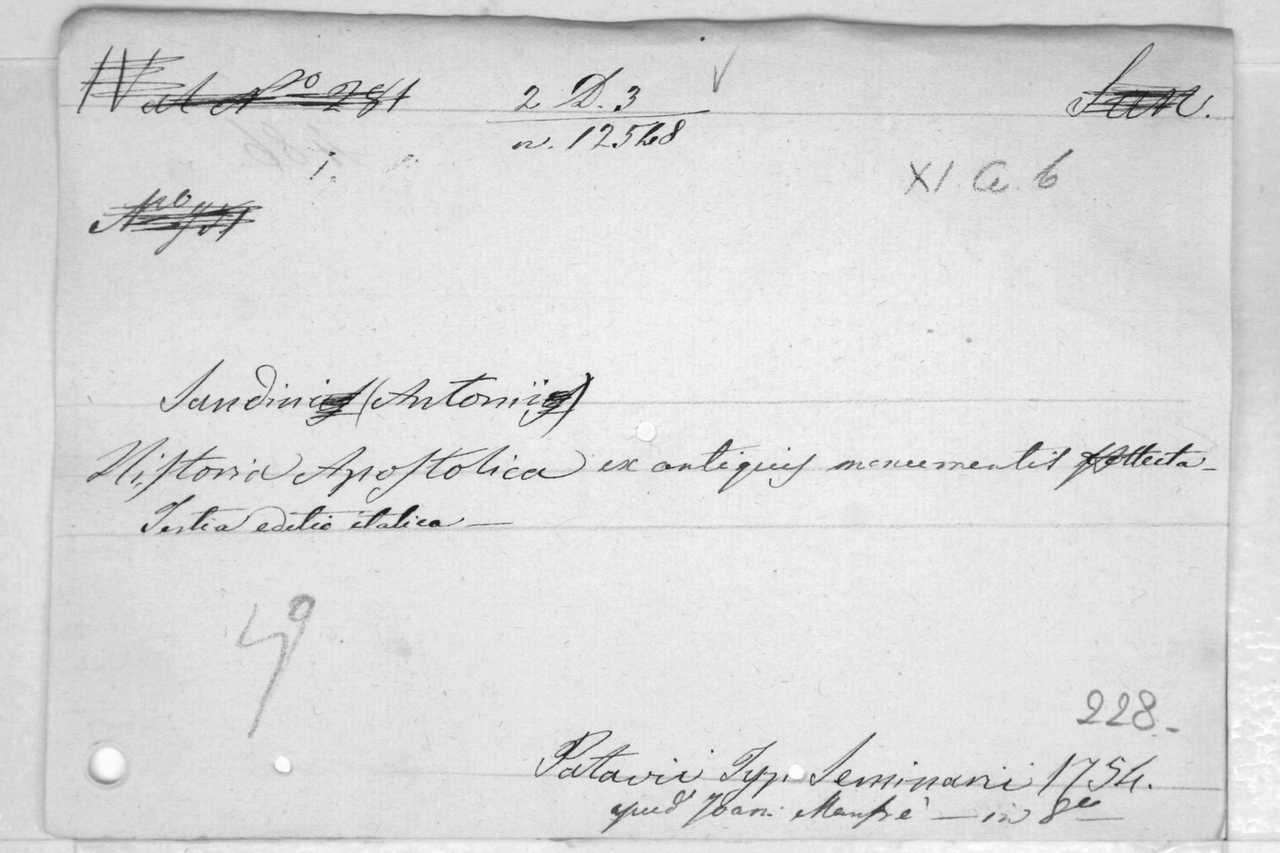 2 D. 3
n. 12548
XI. a. 6
Sandini (Antonii)
Historia Apostolica ex antiquis monumentis collecta
Tertia editio italica —
228.-
Patavii Typ. Seminarii 1754.
apud Joan. Manfrè — in 8vo